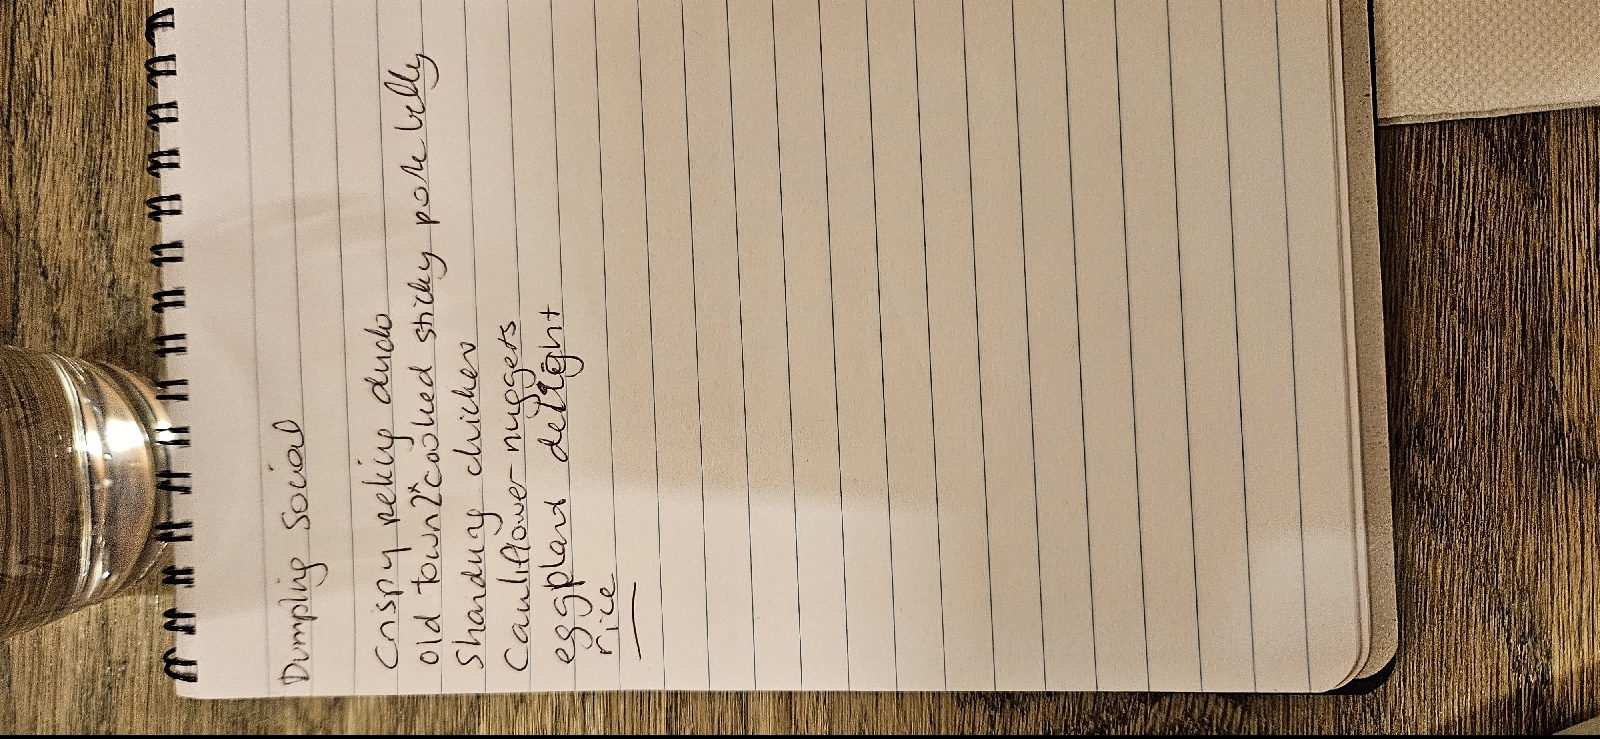 Dumpling Social
Crispy peking duck
old town 2x cooked sticky pork belly
Shandung chicken
Cauliflower nuggets
eggplant delight
rice